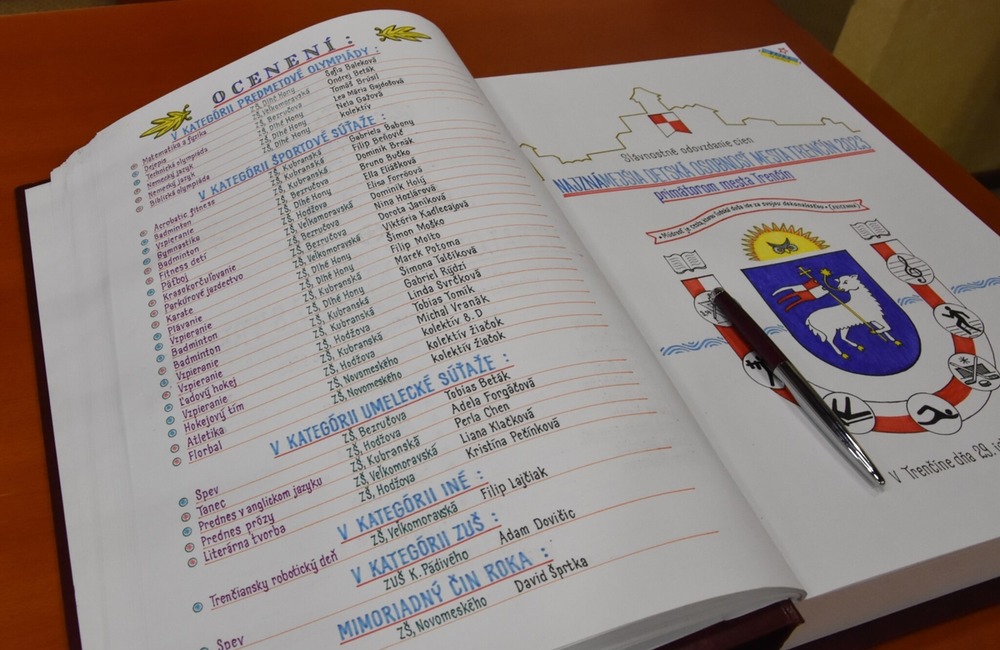 OCENENÍ :
V KATEGÓRII PREDMETOVÉ OLYMPIÁDY :
Matematika a fyzika ZŠ, Dlhé Hony Sofia Baleková
Dejepis ZŠ, Veľkomoravská Ondrej Beták
Technická olympiáda ZŠ, Bezručova Tomáš Brúsil
Nemecký jazyk ZŠ, Dlhé Hony Lea Mária Gajdošová
Nemecký jazyk ZŠ, Dlhé Hony Nela Gažová
Biblická olympiáda ZŠ, Dlhé Hony kolektív
V KATEGÓRII ŠPORTOVÉ SÚŤAŽE :
Acrobatic fitness ZŠ, Kubranská Gabriela Babony
Badminton ZŠ, Kubranská Filip Beňovič
Vzpieranie ZŠ, Kubranská Dominik Brnák
Gymnastika ZŠ, Bezručova Bruno Bučko
Badminton ZŠ, Dlhé Hony Ella Eliášková
Fitness detí ZŠ, Hodžova Elisa
Päťboj ZŠ, Veľkomoravská Dominik Holý
Krasokorčuľovanie ZŠ, Bezručova Nina Hozlárová
Parkúrové jazdectvo ZŠ, Bezručova Dorota Janíková
Karate ZŠ, Veľkomoravská Viktória
Plávanie ZŠ, Dlhé Hony Šimon Moško
Vzpieranie ZŠ, Dlhé Hony Filip
Badminton ZŠ, Kubranská Marek Potoma
Badminton ZŠ, Dlhé Hony Simona
Vzpieranie ZŠ, Kubranská Gabriel Rýdzi
Vzpieranie ZŠ, Kubranská Linda Svrčková
Ľadový hokej ZŠ, Hodžova Tobias Tomík
Vzpieranie ZŠ, Kubranská Michal Vranák
Hokejový tím ZŠ, Hodžova kolektív 8. D
Atletika ZŠ, Novomeského kolektív žiačok
Florbal ZŠ, Novomeského kolektív žiačok
V KATEGÓRII UMELECKÉ SÚŤAŽE :
Spev ZŠ, Bezručova Tobias Beták
Tanec ZŠ, Hodžova Adela Forgáčová
Prednes v anglickom jazyku ZŠ, Kubranská Perla Chen
Prednes prózy ZŠ, Veľkomoravská Liana Klačková
Literárna tvorba ZŠ, Hodžova Kristína Pečínková
V KATEGÓRII INÉ :
Trenčiansky robotický deň ZŠ, Veľkomoravská Filip Lajčiak
V KATEGÓRII ZUŠ :
Spev ZUŠ K. Pádivého Adam Dovičic
MIMORIADNY ČIN ROKA :
ZŠ, Novomeského David Šprtka
Slávnostné odovzdanie cien
NAJZNÁMEJŠIA DETSKÁ OSOBNOSŤ MESTA TRENČÍN 2023
primátorom mesta Trenčín
V Trenčíne dňa 29.